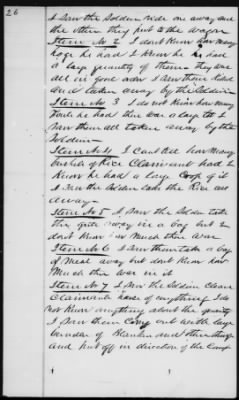 26
I Saw the Soldiers ride on away and
the other they put to the wagon
Item No 2 I dont Know how many
hogs he had I Know he had
a large quantity of them - they was
all in good order I saw them Killed
and taken away by the Soldiers
Item No 3 I do not Know how many
fowls he had there was a large lot I
Saw them all taken away by the
Soldiers -
Item No 4 I Cant tell how many
bushels of Rice Claimant had I
Know he had a large Crop of it
I Saw the Soldiers take the Rice all
away -
Item No 5 I Saw the Soldiers take
this away in a bag but I
dont Know how Much there was
Item No 6 I saw them take a bag
of Meal away but dont Know how
Much there was in it
Item No 7 I Saw the Soldiers Clean
Claimants house of everything I do
not Know anything about the quantity
I Saw them Carry out with large
bundles of Blankets and other things
and put off in direction of the Camp